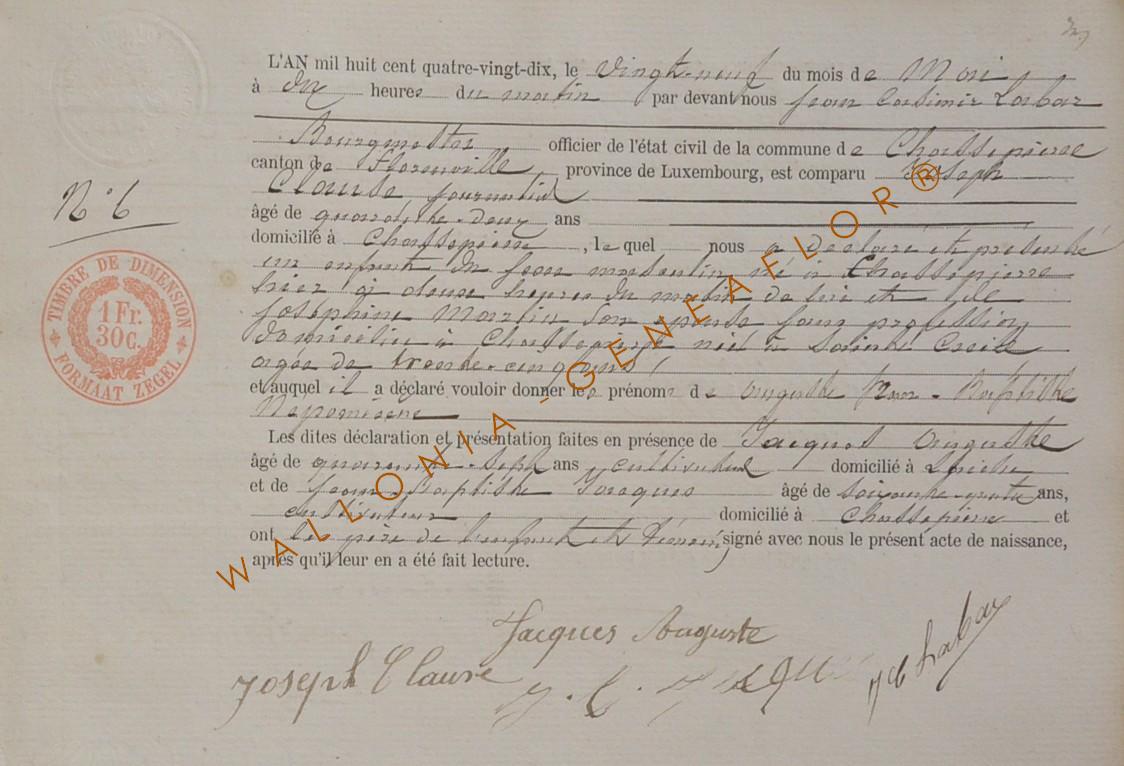 L'AN mil huit cent quatre-vingt-dix, le vingt-neuf du mois de Mai
à dix heures du matin par devant nous Jean Casimir Labar
Bourgmestre officier de l'état civil de la commune de Chassepierre
canton de Florenville province de Luxembourg, est comparu Joseph
Clause journalier
âgé de quarante-deux ans
domicilié à Chassepierre, lequel nous a déclaré et présenté
un enfant du sexe masculin né à Chassepierre
hier à douse heures du matin de lui et de
Joséphine Martin son épouse sans profession
domiciliée à Chassepierre née à Sainte Cecile
agée de trente-cinq ans
et auquel il a déclaré vouloir donner les prénoms de Auguste Jean-Baptiste
Nepomucene
Les dites déclaration et présentation faites en présence de Jacques Auguste
âgé de quarante-sept ans cultivateur domicilié à Laiche
et de Jean-Baptiste Jacques âgé de soixante-quatre ans,
cultivateur domicilié à Chassepierre et
ont les père de l'enfant et témoins signé avec nous le présent acte de naissance,
après qu'il leur en a été fait lecture.
N° 6
TIMBRE DE DIMENSION
1 Fr.
30 C.
FORMAAT ZEGEL
WALLONIA - GENEAFLOR®
Jacques Auguste
Joseph Clause
J. B. Jacques
JC Labar